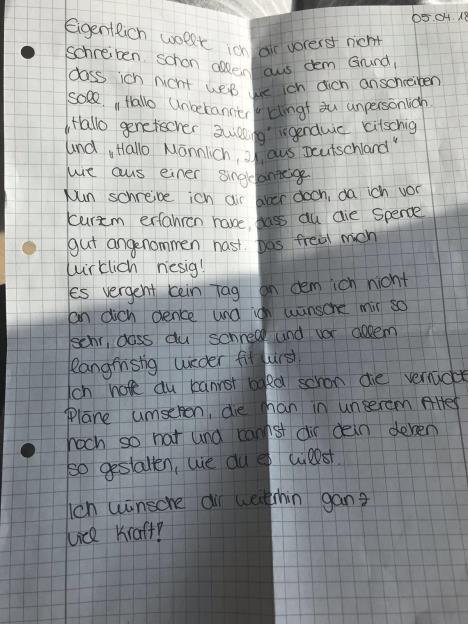 05.04.18
Eigentlich wollte ich dir vorerst nicht
schreiben schon allein aus dem Grund,
dass ich nicht weiß wie ich dich anschreiben
soll. „Hallo Unbekannter“ klingt zu unpersönlich.
„Hallo genetischer Zwilling“ irgendwie kitschig
und „Hallo Männlich, 21, aus Deutschland“
wie aus einer Singleanzeige.
Nun schreibe ich dir aber doch, da ich vor
kurzem erfahren habe, dass du die Spende
gut angenommen hast. Das freut mich
wirklich riesig!
Es vergeht kein Tag an dem ich nicht
an dich denke und ich wünsche mir so
sehr, dass du schnell und vor allem
langfristig wieder fit wirst.
Ich hoffe du kannst bald schon die verrückte
Pläne umsetzen, die man in unserem Alter
noch so hat und kannst dir dein Leben
so gestalten, wie du es willst.
Ich wünsche dir weiterhin ganz
viel Kraft!